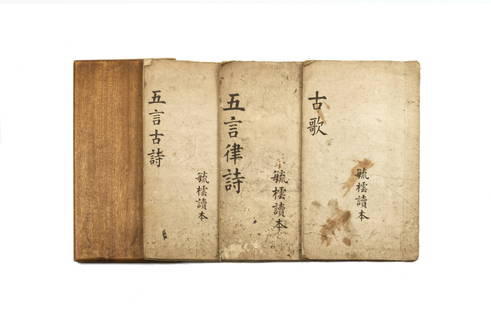 五言古詩
毓樗讀本
五言律詩
毓樗讀本
古歌
毓樗讀本